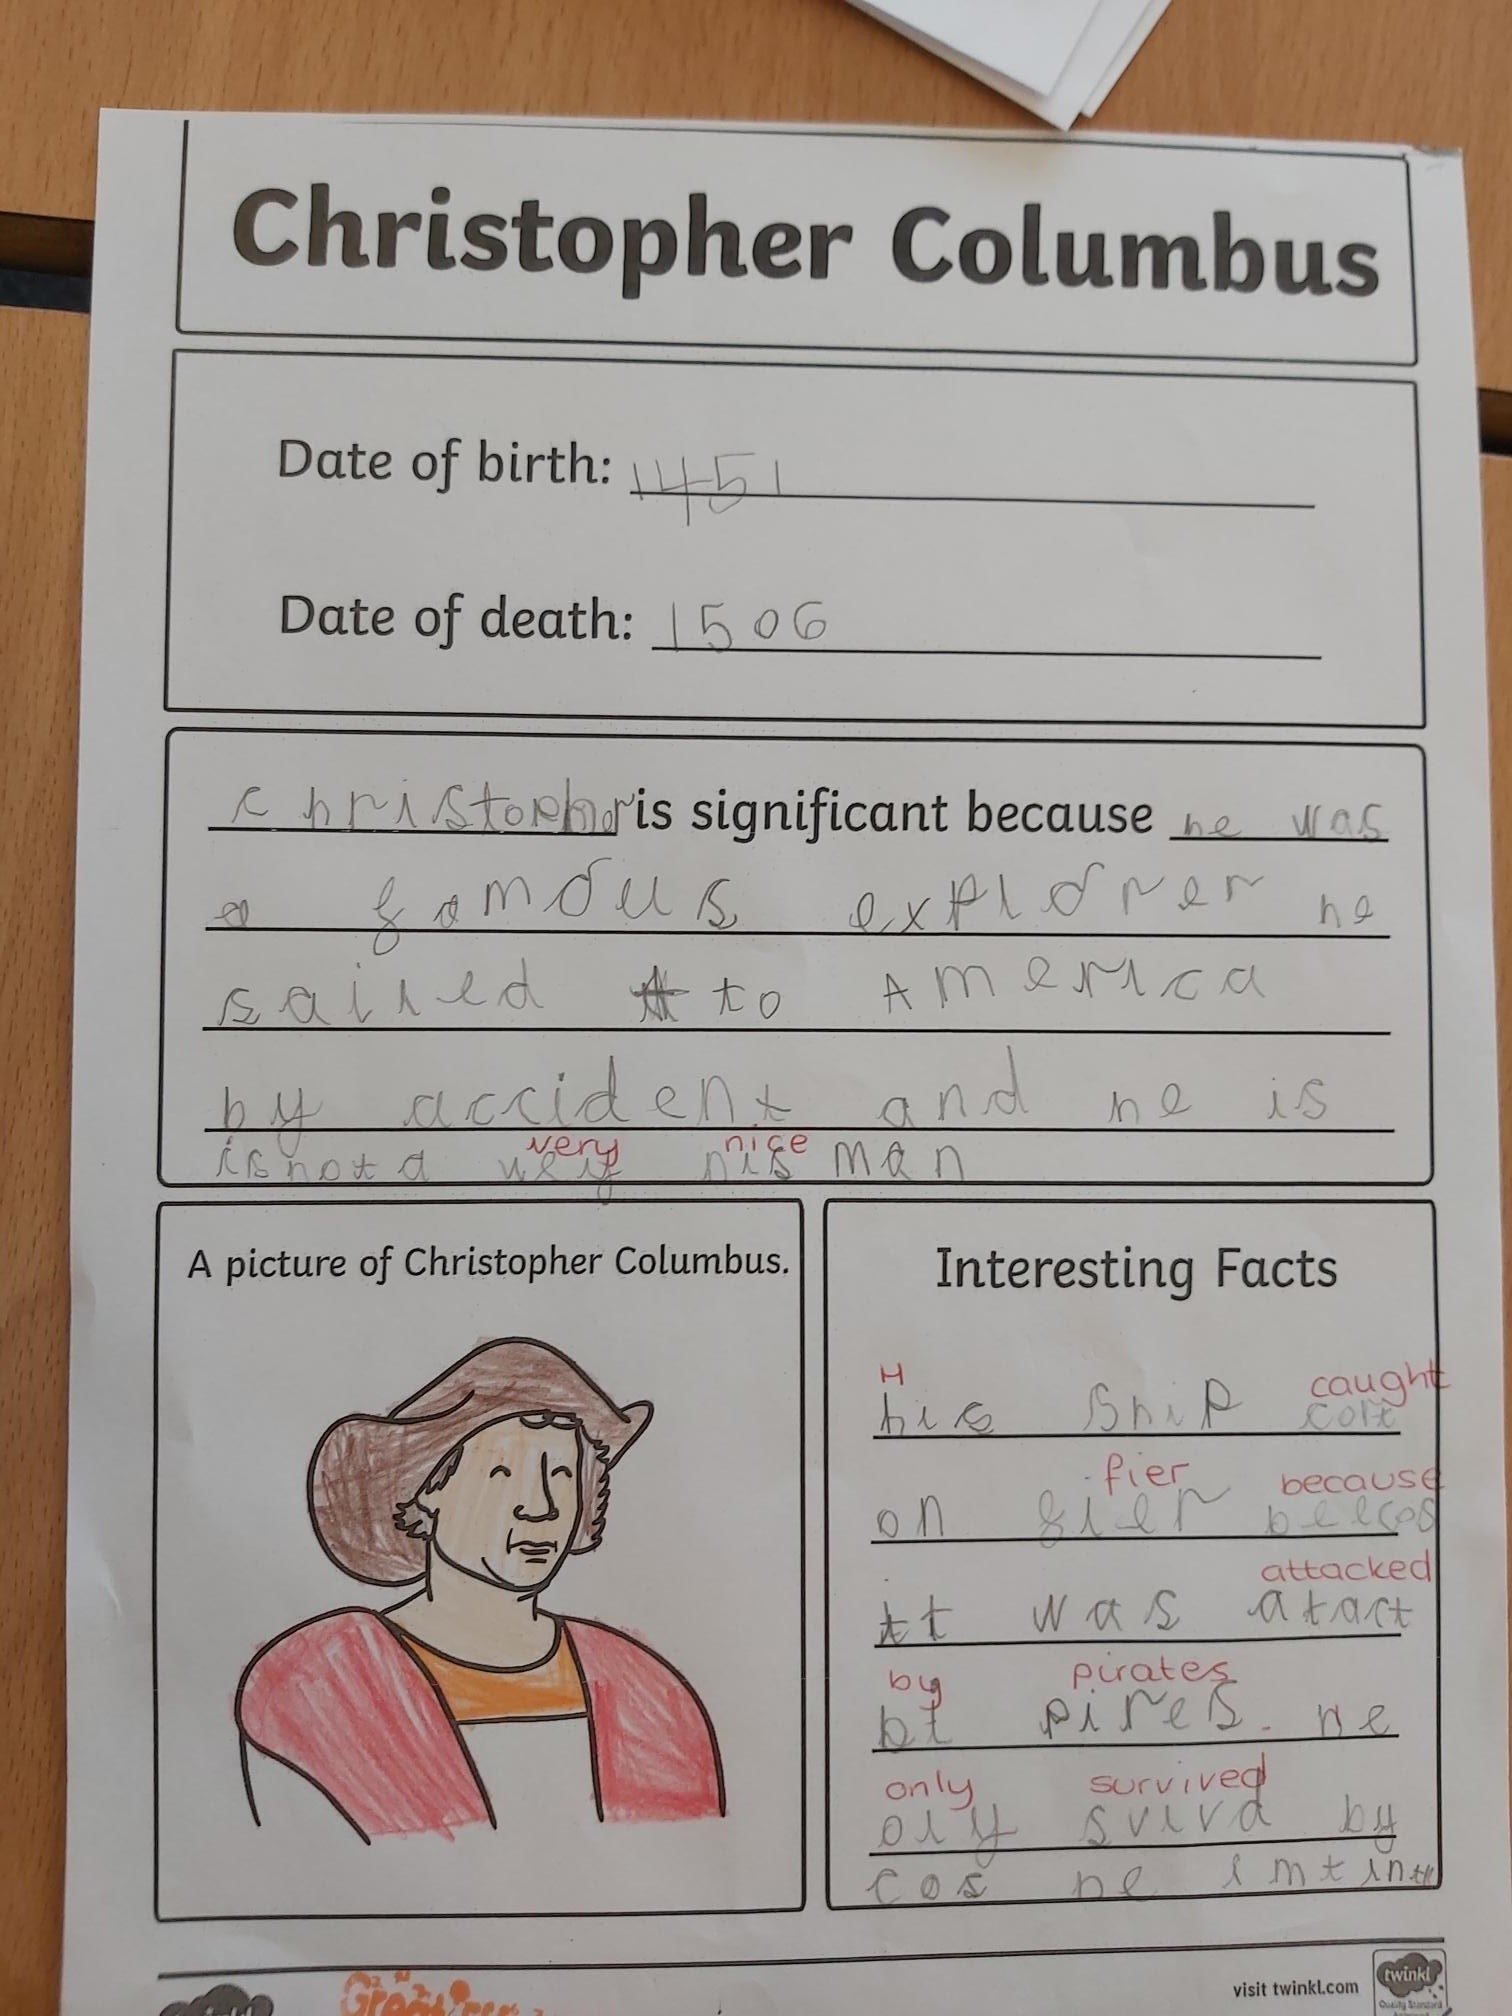 Christopher Columbus
Date of birth: 1451
Date of death: 1506
christopher is significant because he was
a famous explorer he
sailed to America
by accident and he is
very nice
is not a very nis man
A picture of Christopher Columbus.
Interesting Facts
H caught
his ship cort
fier because
on fier beecos
attacked
it was atact
by pirates
bt pires. he
only survived
oly svivd by
cos he imt in
visit twinkl.com
twinkl
Quality Standard
twinkl